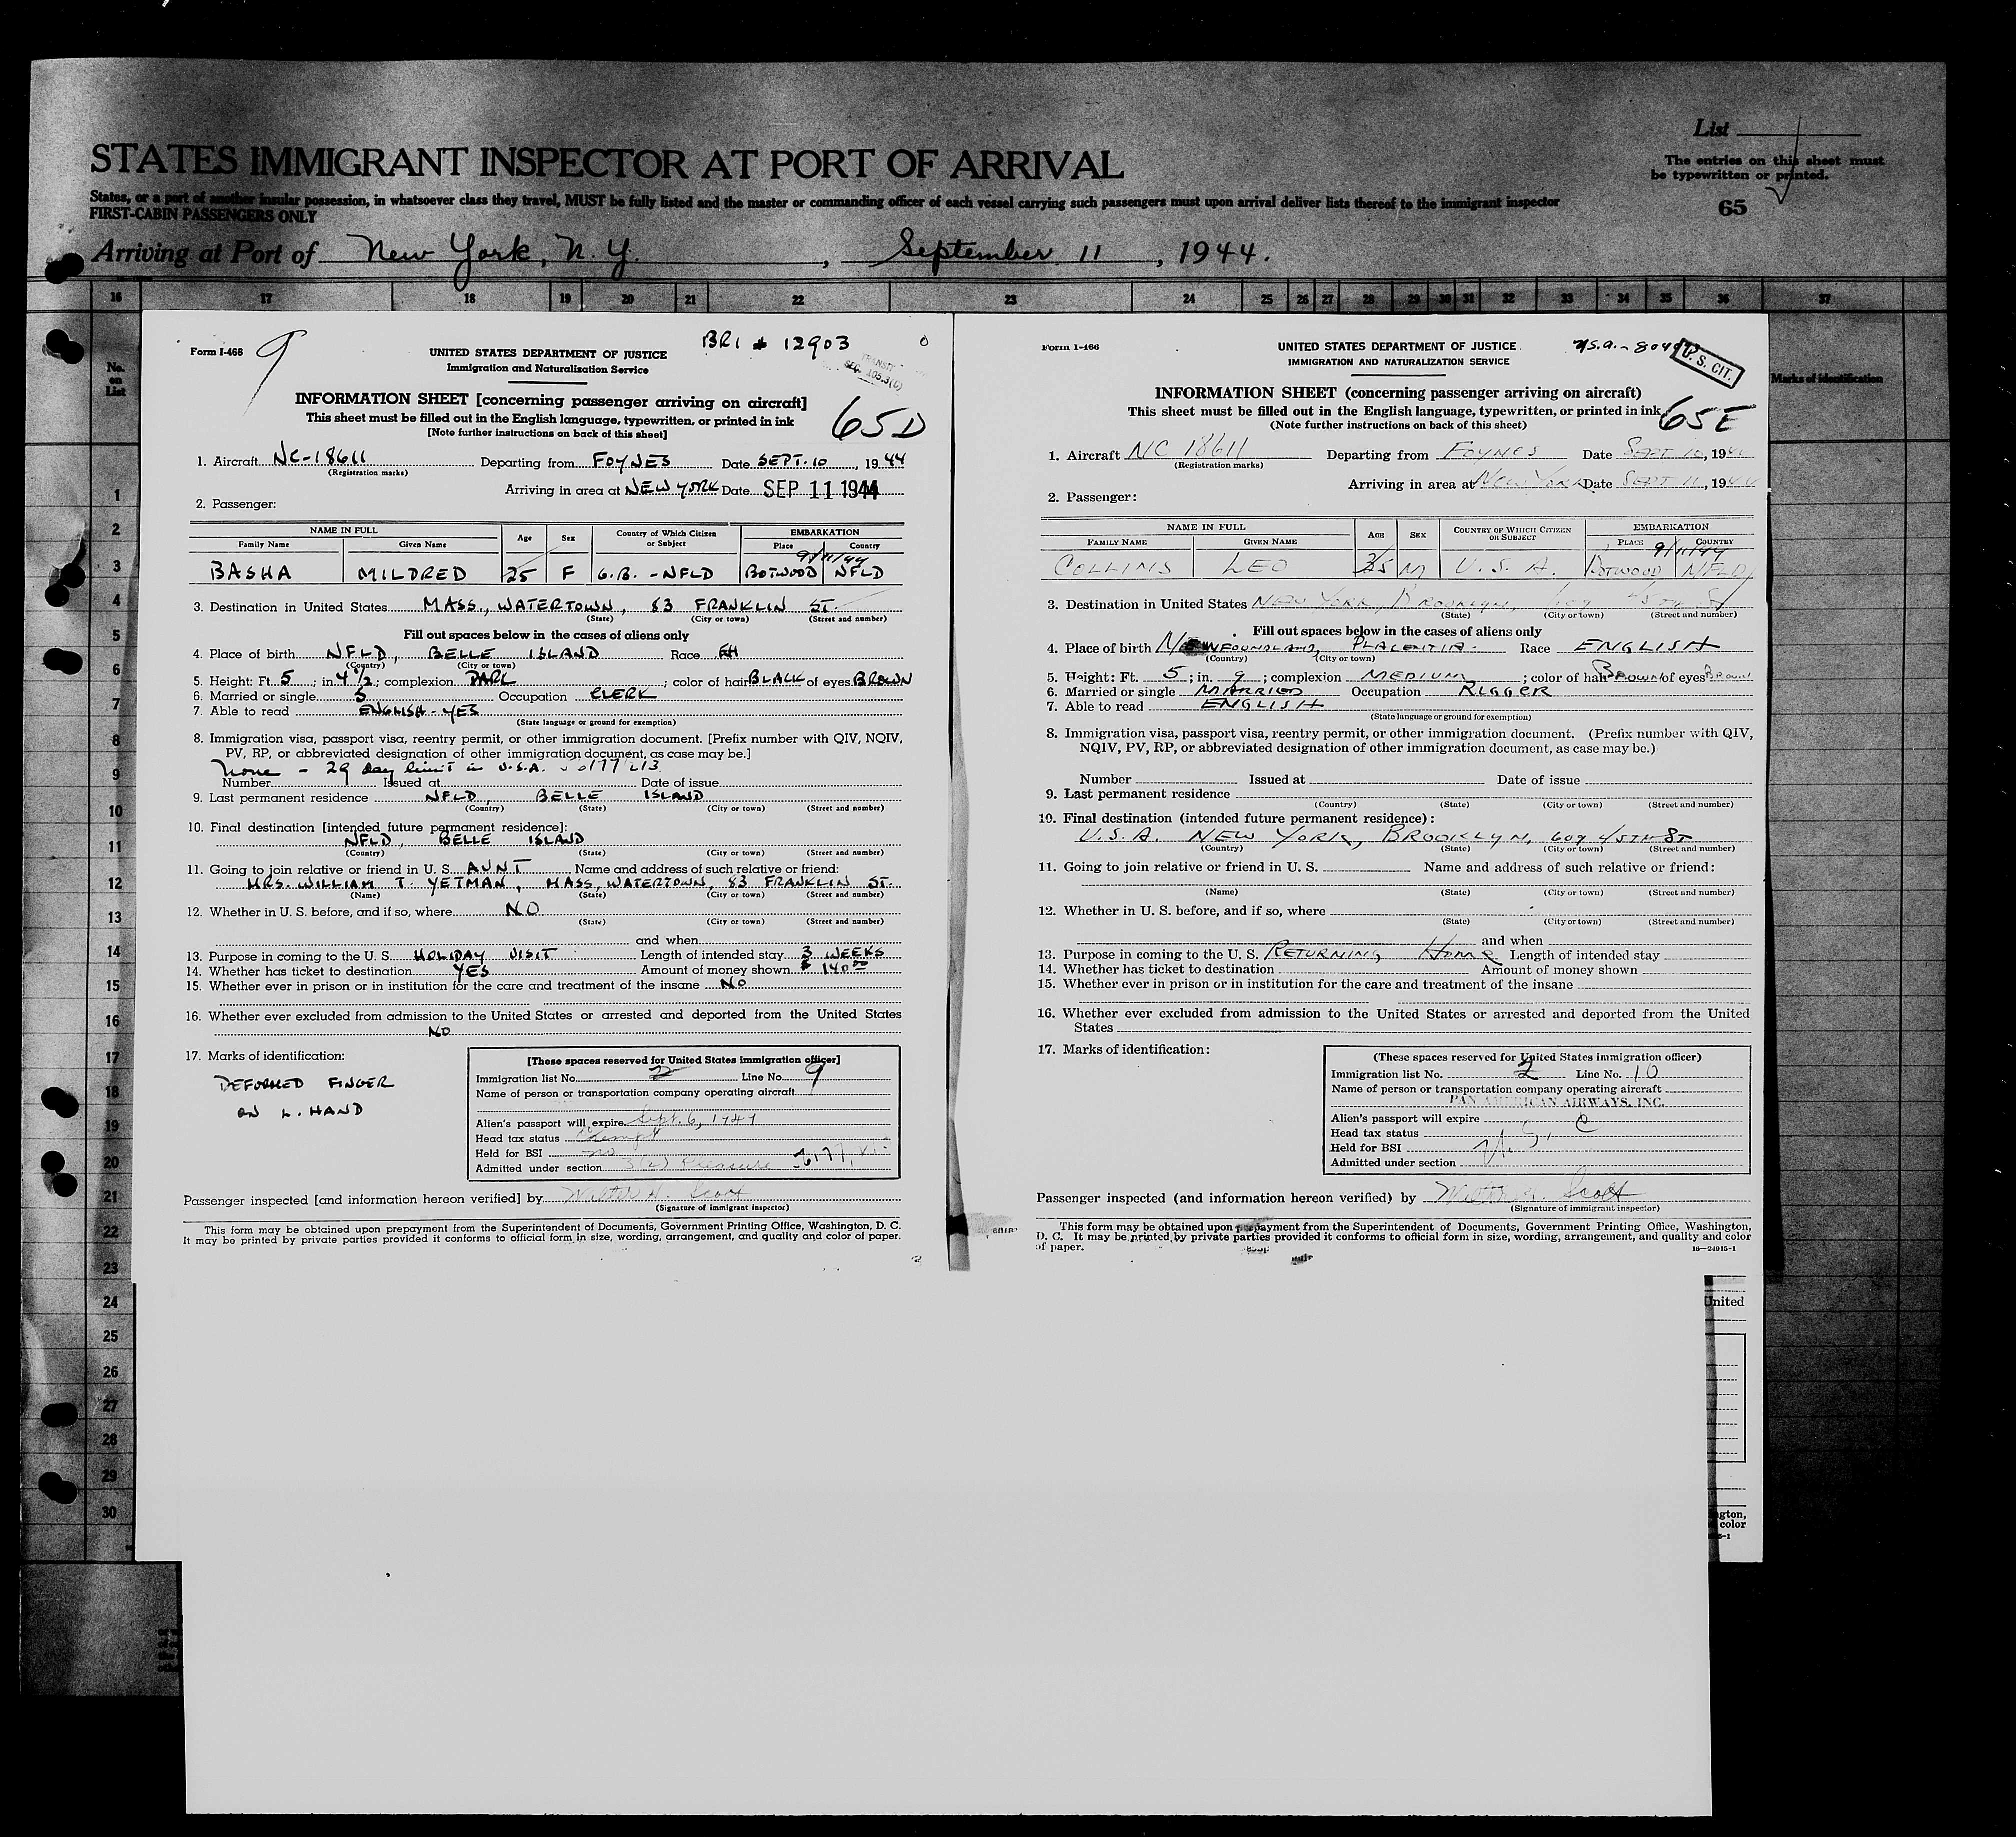 List
STATES IMMIGRANT INSPECTOR AT PORT OF ARRIVAL
The entries on this sheet must
be typewritten or printed.
States, or a port of another insular possession, in whatsoever class they travel, MUST be fully listed and the master or commanding officer of each vessel carrying such passengers must upon arrival deliver lists thereof to the immigrant inspector
FIRST-CABIN PASSENGERS ONLY
65
Arriving at Port of New York, N.Y., September 11, 1944.
16 17 18 19 20 21 22 23 24 25 26 27 28 29 30 31 32 33 34 35 36 37
No. on List
Marks of identification
1
2
3
4
5
6
7
8
9
10
11
12
13
14
15
16
17
18
19
20
21
22
23
24
25
26
27
28
29
30
Form I-466
9
BRI 12903
UNITED STATES DEPARTMENT OF JUSTICE
Immigration and Naturalization Service
TRANSIT
SEC. 105.3(c)
INFORMATION SHEET [concerning passenger arriving on aircraft]
This sheet must be filled out in the English language, typewritten, or printed in ink
[Note further instructions on back of this sheet]
65D
1. Aircraft NC-18611 Departing from FOYNES Date SEPT. 10, 1944
(Registration marks)
Arriving in area at NEW YORK Date SEP 11 1944
2. Passenger:
NAME IN FULL Age Sex Country of Which Citizen or Subject EMBARKATION
Family Name Given Name Place Country
9/11/44
BASHA MILDRED 25 F G.B. - NFLD BOTWOOD NFLD
3. Destination in United States MASS., WATERTOWN, 83 FRANKLIN ST.
(State) (City or town) (Street and number)
Fill out spaces below in the cases of aliens only
4. Place of birth NFLD, BELLE ISLAND Race
(Country) (City or town)
5. Height: Ft. 5; in. 4 1/2; complexion DARK; color of hair BLACK of eyes BROWN
6. Married or single S Occupation CLERK
7. Able to read ENGLISH - YES
(State language or ground for exemption)
8. Immigration visa, passport visa, reentry permit, or other immigration document. [Prefix number with QIV, NQIV,
PV, RP, or abbreviated designation of other immigration document, as case may be.]
None - 29 day limit in U.S.A.
Number Issued at Date of issue
9. Last permanent residence NFLD, BELLE ISLAND
(Country) (State) (City or town) (Street and number)
10. Final destination [intended future permanent residence]:
NFLD, BELLE ISLAND
(Country) (State) (City or town) (Street and number)
11. Going to join relative or friend in U. S. AUNT Name and address of such relative or friend:
MRS. WILLIAM T. YETMAN, MASS, WATERTOWN, 83 FRANKLIN ST.
(Name) (State) (City or town) (Street and number)
12. Whether in U. S. before, and if so, where NO
(State) (City or town) (Street and number)
and when
13. Purpose in coming to the U. S. HOLIDAY VISIT Length of intended stay 3 WEEKS
14. Whether has ticket to destination YES Amount of money shown $ 140.00
15. Whether ever in prison or in institution for the care and treatment of the insane NO
16. Whether ever excluded from admission to the United States or arrested and deported from the United States
NO
17. Marks of identification:
DEFORMED FINGER
ON L. HAND
[These spaces reserved for United States immigration officer]
Immigration list No. 2 Line No. 9
Name of person or transportation company operating aircraft
Alien's passport will expire Sept. 6, 1947
Head tax status Exempt
Held for BSI no
Admitted under section 3(2) Pleasure
Passenger inspected [and information hereon verified] by Walter H. Scott
(Signature of immigrant inspector)
This form may be obtained upon prepayment from the Superintendent of Documents, Government Printing Office, Washington, D. C.
It may be printed by private parties provided it conforms to official form in size, wording, arrangement, and quality and color of paper.
Form I-466
UNITED STATES DEPARTMENT OF JUSTICE
IMMIGRATION AND NATURALIZATION SERVICE
U. S. CIT.
INFORMATION SHEET (concerning passenger arriving on aircraft)
This sheet must be filled out in the English language, typewritten, or printed in ink
(Note further instructions on back of this sheet)
65E
1. Aircraft NC 18611 Departing from FOYNES Date SEPT 10, 1944
(Registration marks)
Arriving in area at NEW YORK Date SEPT 11, 1944
2. Passenger:
NAME IN FULL AGE SEX COUNTRY OF WHICH CITIZEN OR SUBJECT EMBARKATION
FAMILY NAME GIVEN NAME PLACE COUNTRY
9/11/44
COLLINS LEO 35 M U. S. A. BOTWOOD NFLD
3. Destination in United States NEW YORK, BROOKLYN 609 45TH St
(State) (City or town) (Street and number)
Fill out spaces below in the cases of aliens only
4. Place of birth NEWFOUNDLAND, PLACENTIA. Race ENGLISH
(Country) (City or town)
5. Height: Ft. 5; in. 9; complexion MEDIUM; color of hair BROWN of eyes BROWN
6. Married or single MARRIED Occupation RIGGER
7. Able to read ENGLISH
(State language or ground for exemption)
8. Immigration visa, passport visa, reentry permit, or other immigration document. (Prefix number with QIV,
NQIV, PV, RP, or abbreviated designation of other immigration document, as case may be.)
Number Issued at Date of issue
9. Last permanent residence
(Country) (State) (City or town) (Street and number)
10. Final destination (intended future permanent residence):
U.S.A. NEW YORK, BROOKLYN, 609 45TH St
(Country) (State) (City or town) (Street and number)
11. Going to join relative or friend in U. S. Name and address of such relative or friend:
(Name) (State) (City or town) (Street and number)
12. Whether in U. S. before, and if so, where
(State) (City or town) (Street and number)
and when
13. Purpose in coming to the U. S. RETURNING HOME Length of intended stay
14. Whether has ticket to destination Amount of money shown
15. Whether ever in prison or in institution for the care and treatment of the insane
16. Whether ever excluded from admission to the United States or arrested and deported from the United
States
17. Marks of identification:
(These spaces reserved for United States immigration officer)
Immigration list No. 2 Line No. 10
Name of person or transportation company operating aircraft
PAN AMERICAN AIRWAYS, INC.
Alien's passport will expire
Head tax status
Held for BSI U. S. C
Admitted under section
Passenger inspected (and information hereon verified) by Walter H. Scott
(Signature of immigrant inspector)
This form may be obtained upon prepayment from the Superintendent of Documents, Government Printing Office, Washington,
D. C. It may be printed by private parties provided it conforms to official form in size, wording, arrangement, and quality and color
of paper.
16-24915-1
United
color